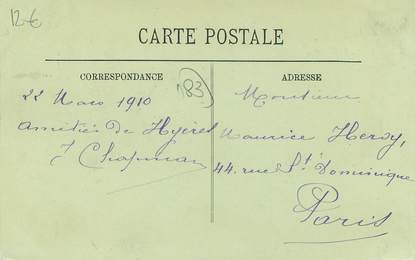 12€
CARTE POSTALE
CORRESPONDANCE
ADRESSE
83
22 Mars 1910
Amitiés de Hyères
J Chapman
Monsieur
Maurice Hervy,
44. rue St. Dominique
Paris